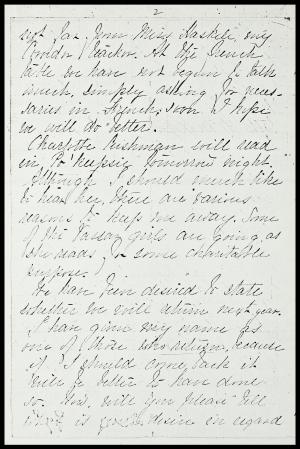 2
not far from Miss Haskell, my
Corridor Teacher. At the French
table we have not begun to talk
much, simply asking for neces-
saries in French; soon I hope
we will do better.
Charlotte Cushman will read
in Po'keepsie tomorrow night.
Although I should much like
to hear her, there are various
reasons to keep me away. Some
of the Vassar girls are going, as
she reads for some charitable
purpose.
We have been desired to state
whether we will return next year.
I have given my name as
one of those who return, because
if I should come back it
will be better to have done
so. Now, will you please tell
what is your desire in regard